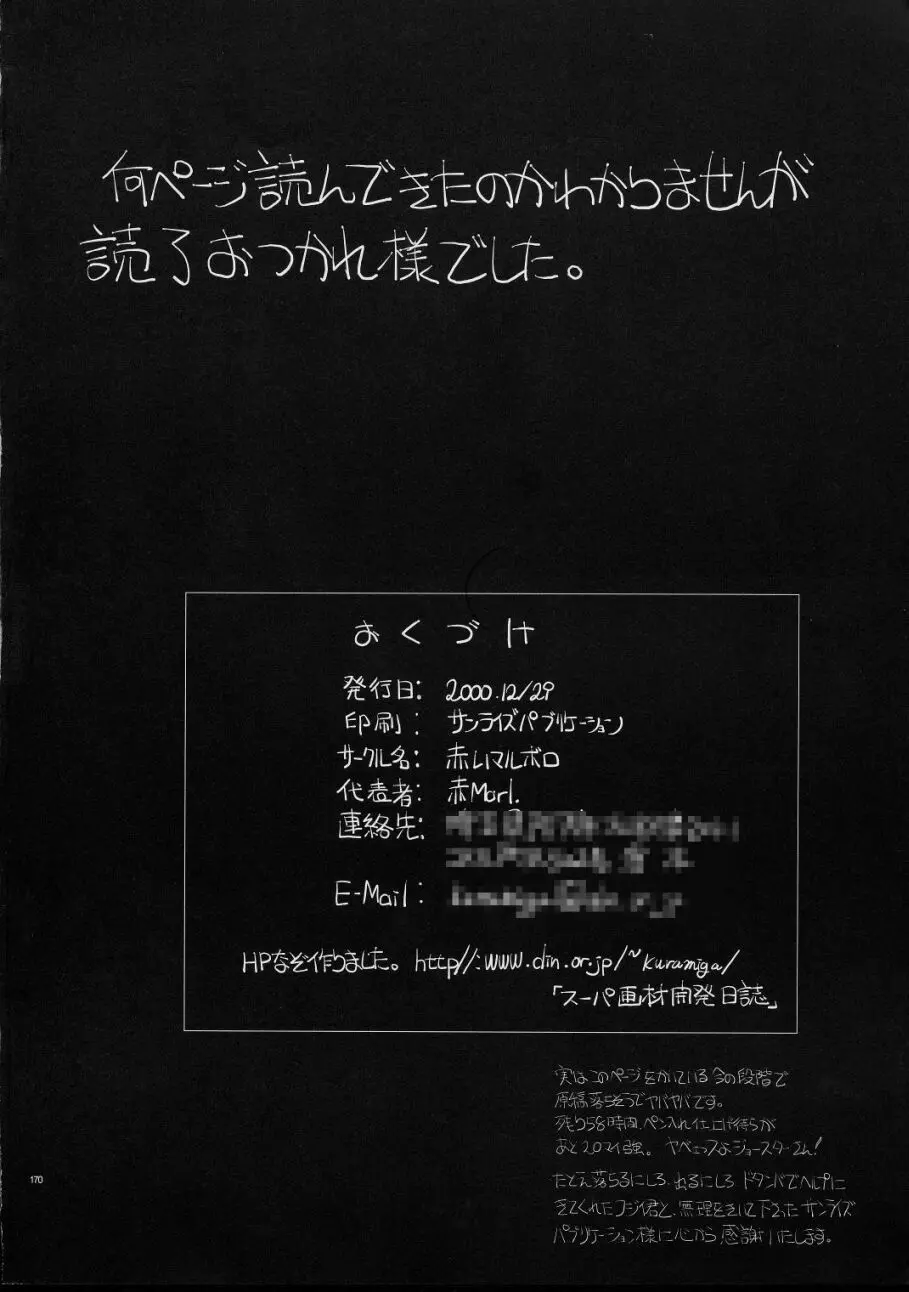 何ページ読んできたのかわかりませんが
読了おつかれ様でした。
おくづけ
発行日: 2000.12/29
印刷: サンライズパブリケーション
サークル名: 赤いマルボロ
代表者: 赤Marl.
連絡先:
E-Mail:
HPなぞ作りました。http//:www.din.or.jp/~kuramiga/
「スーパ画材開発日誌」
実はこのページをかいている今の段階で
原稿落ちそうでヤバヤバです。
残り58時間、ペン入れ仕上げ待ちが
あと20マイ強。ヤベェっスよジョースターさん!
たとえ落ちるにしろ、出るにしろ ドタンバでヘルプに
きてくれたコジイ君と、無理をきいて下さった サンライズ
パブリケーション様に心から感謝いたします。
170